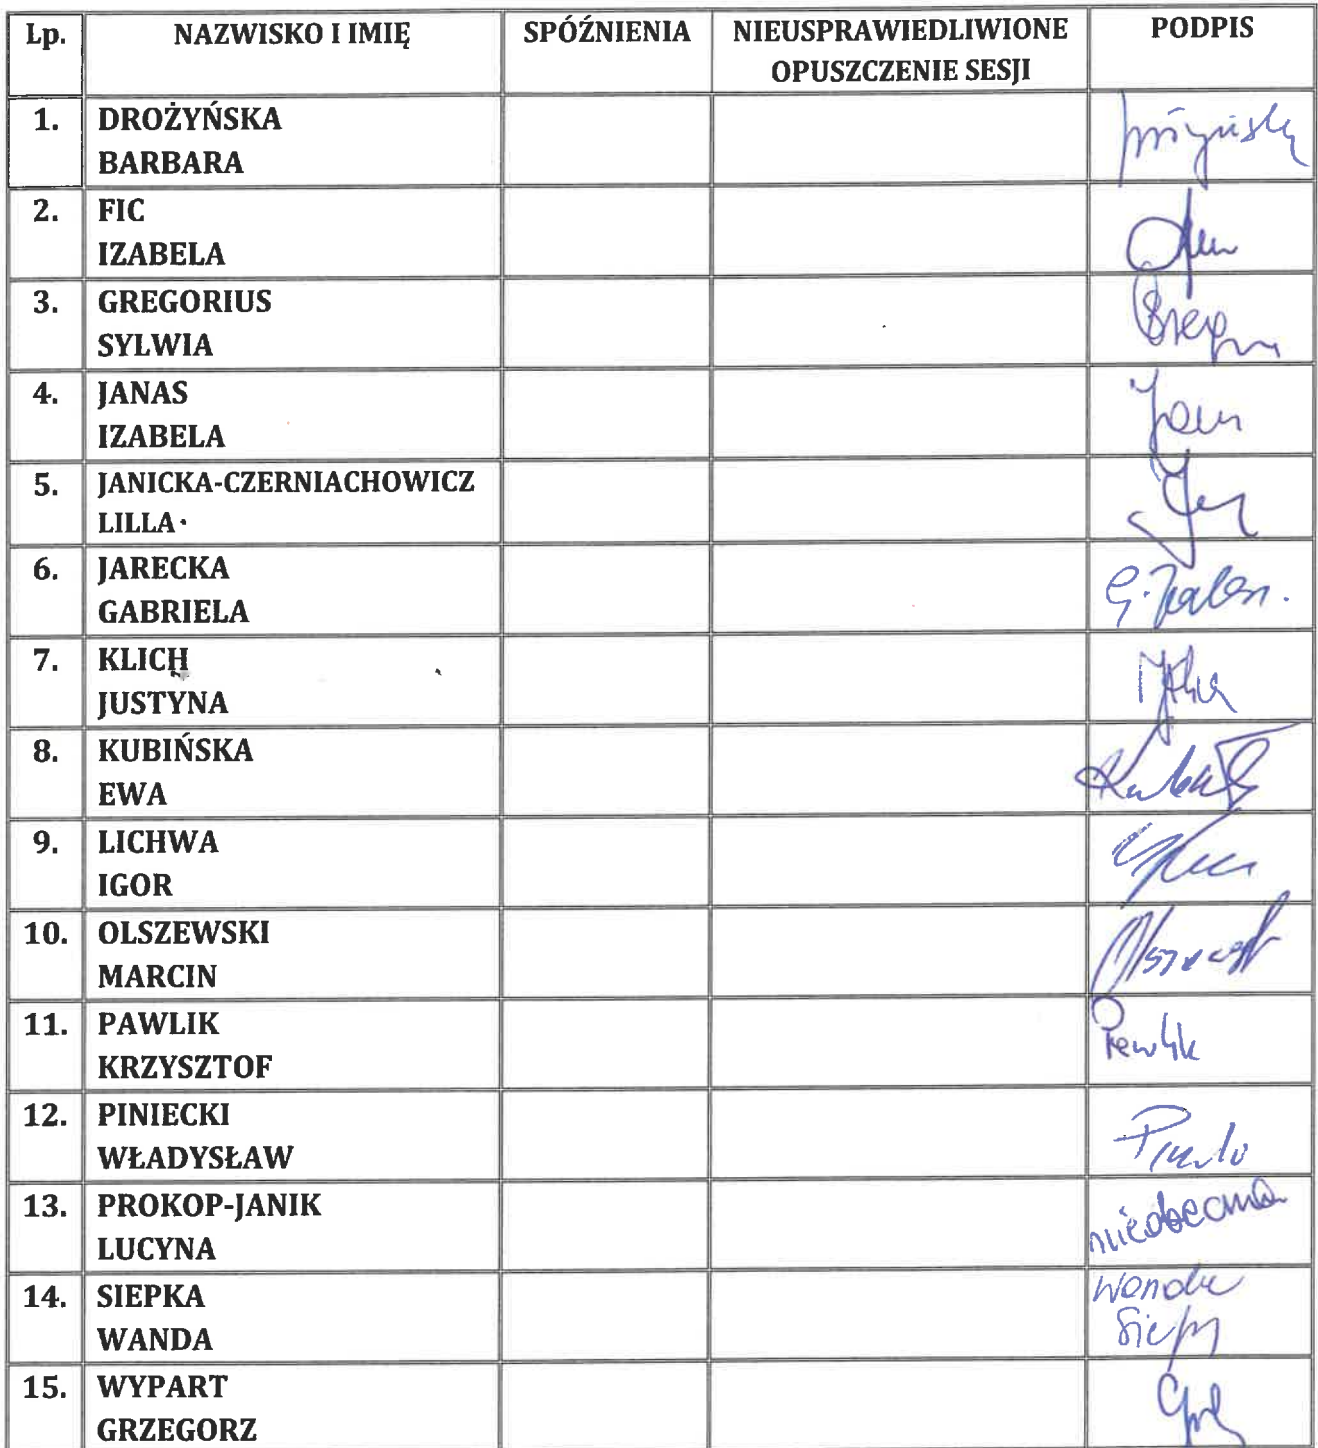 Lp. NAZWISKO I IMIĘ SPÓŹNIENIA NIEUSPRAWIEDLIWIONE OPUSZCZENIE SESJI PODPIS
1. DROŻYŃSKA
BARBARA
2. FIC
IZABELA
3. GREGORIUS
SYLWIA
4. JANAS
IZABELA
5. JANICKA-CZERNIACHOWICZ
LILLA
6. JARECKA
GABRIELA
7. KLICH
JUSTYNA
8. KUBIŃSKA
EWA
9. LICHWA
IGOR
10. OLSZEWSKI
MARCIN
11. PAWLIK Pawlik
KRZYSZTOF
12. PINIECKI
WŁADYSŁAW
13. PROKOP-JANIK nieobecna
LUCYNA
14. SIEPKA Wanda
WANDA
15. WYPART
GRZEGORZ